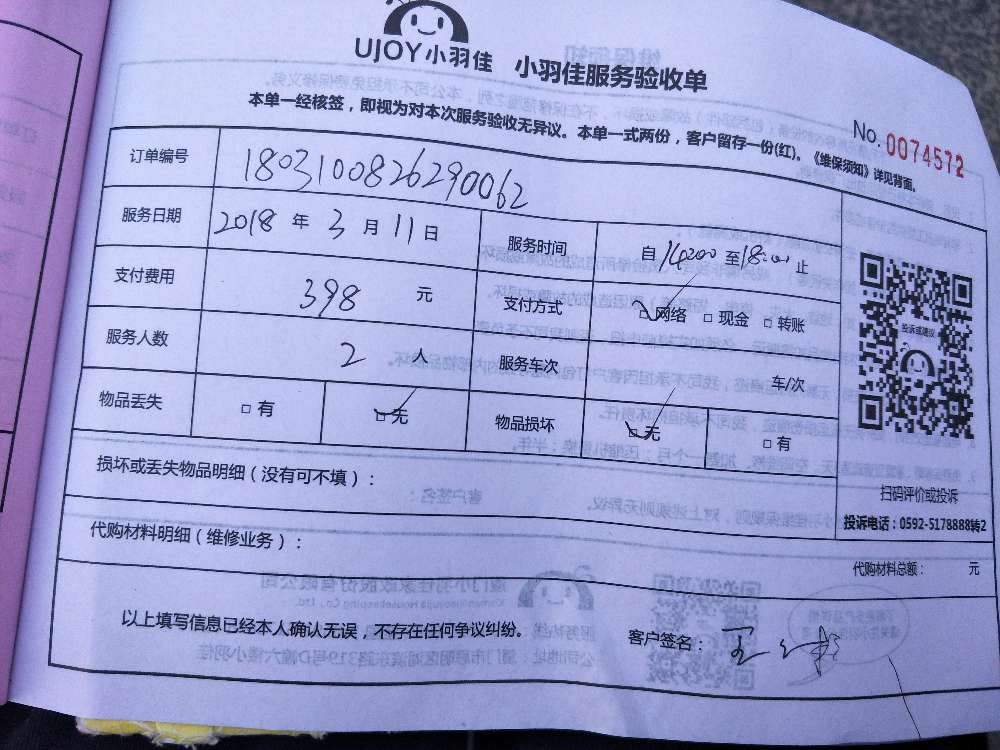 UJOY小羽佳 小羽佳服务验收单
本单一经核签，即视为对本次服务验收无异议。本单一式两份，客户留存一份(红)。《维保须知》详见背面。
No. 0074572
订单编号 1803100826290062
服务日期 2018 年 3 月 11 日 服务时间 自 14:00 至 18:00 止
支付费用 398 元 支付方式 □网络 □现金 □转账
服务人数 2 人 服务车次 车/次
物品丢失 □有 □无 物品损坏 □无 □有
投诉或建议
扫码评价或投诉
投诉电话：0592-5178888转2
损坏或丢失物品明细（没有可不填）：
代购材料明细（维修业务）：
代购材料总额： 元
以上填写信息已经本人确认无误，不存在任何争议纠纷。
客户签名：